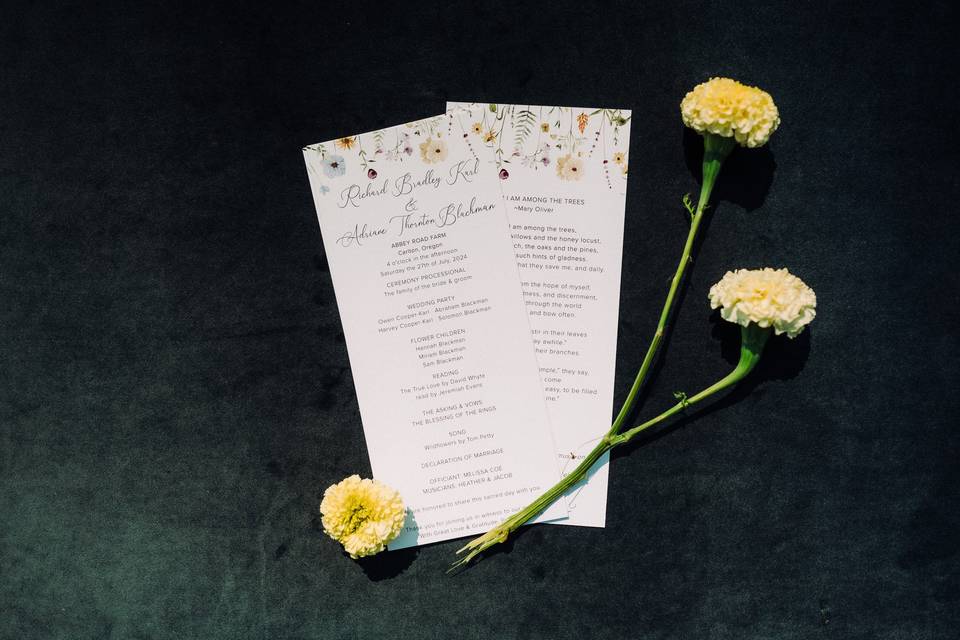 Richard Bradley Karl
&
Adriane Thornton Blackman
ABBEY ROAD FARM
Carlton, Oregon
4 o'clock in the afternoon
Saturday the 27th of July, 2024
CEREMONY PROCESSIONAL
The family of the bride & groom
WEDDING PARTY
Owen Cooper-Karl Abraham Blackman
Harvey Cooper-Karl Solomon Blackman
FLOWER CHILDREN
Hannah Blackman
Miriam Blackman
Sam Blackman
READING
The True Love by David Whyte
read by Jeremiah Evans
THE ASKING & VOWS
THE BLESSING OF THE RINGS
SONG
Wildflowers by Tom Petty
DECLARATION OF MARRIAGE
OFFICIANT: MELISSA COE
MUSICIANS: HEATHER & JACOB
are honored to share this sacred day with you
Thank you for joining us in witness to our
With Great Love & Gratitude,
I AM AMONG THE TREES
~Mary Oliver
I am among the trees,
willows and the honey locust,
the oaks and the pines,
such hints of gladness.
that they save me, and daily.
the hope of myself,
and discernment,
through the world
and bow often.
stir in their leaves
awhile."
their branches
they say,
come
easy, to be filled